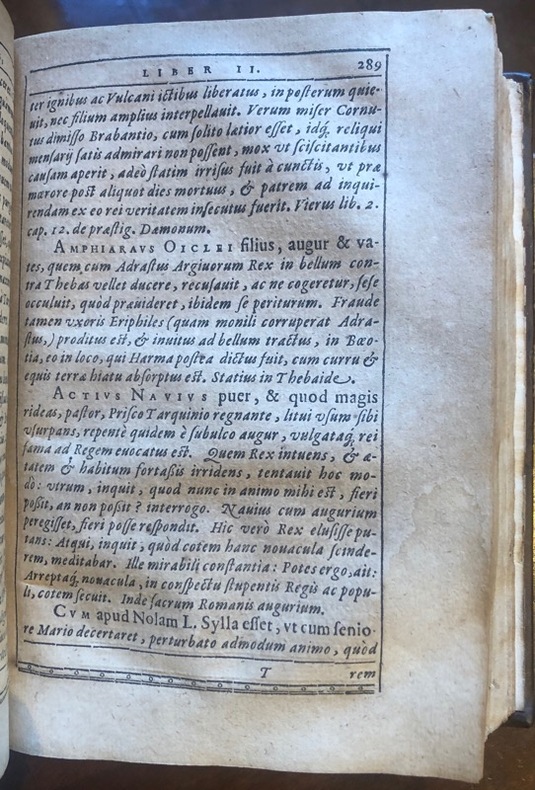 LIBER II. 289
ter ignibus ac Vulcani ictibus liberatus, in posterum quie-
uit, nec filium amplius interpellauit. Verum miser Cornu-
tus dimisso Brabantio, cum solito latior esset, idq́, reliqui
mensarij satis admirari non possent, mox vt sciscitantibus
causam aperit, adeò statim irrisus fuit à cunctis, vt præ
mærore post aliquot dies mortuus, & patrem ad inqui-
rendam ex eo rei veritatem insecutus fuerit. Vierus lib. 2.
cap. 12. de præstig. Dæmonum.
AMPHIARAVS OICLEI filius, augur & va-
tes, quem cum Adrastus Argiuorum Rex in bellum con-
tra Thebas vellet ducere, recusauit, ac ne cogeretur, sese
occuluit, quòd præuideret, ibidem se periturum. Fraude
tamen vxoris Eriphiles (quam monili corruperat Adra-
stus,) proditus est, & inuitus ad bellum tractus, in Bœo-
tia, eo in loco, qui Harma postea dictus fuit, cum curru &
equis terræ hiatu absorptus est. Statius in Thebaide.
ACTIVS NAVIVS puer, & quod magis
rideas, pastor, Prisco Tarquinio regnante, litui vsum sibi
vsurpans, repentè quidem è subulco augur, vulgataq́, rei
fama ad Regem euocatus est. Quem Rex intuens, & æ-
tatem & habitum fortassis irridens, tentauit hoc mo-
dò: vtrum, inquit, quod nunc in animo mihi est, fieri
possit, an non possit? interrogo. Nauius cum augurium
peregisset, fieri posse respondit. Hic verò Rex elusisse pu-
tans: Atqui, inquit, quòd cotem hanc nouacula scinde-
rem, meditabar. Ille mirabili constantia: Potes ergo, ait:
Arreptaq́, nouacula, in conspectu stupentis Regis ac popu-
li, cotem secuit. Inde sacrum Romanis augurium.
CVM apud Nolam L. Sylla esset, vt cum senio-
re Mario decertaret, perturbato admodum animo, quòd
T rem